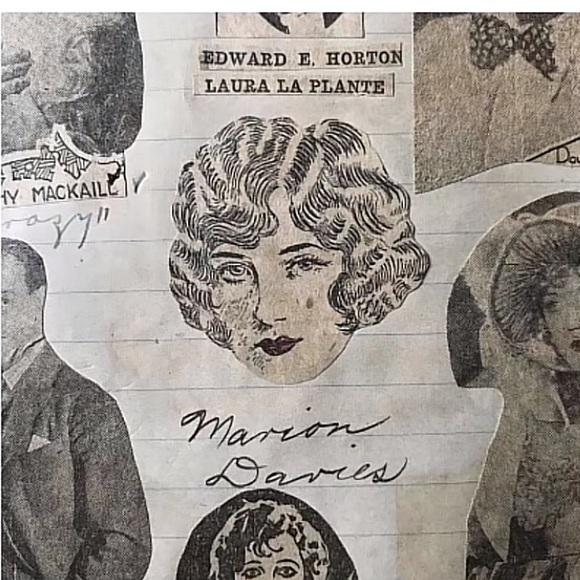 EDWARD E. HORTON
LAURA LA PLANTE
HY MACKAILL
Marion
Davies